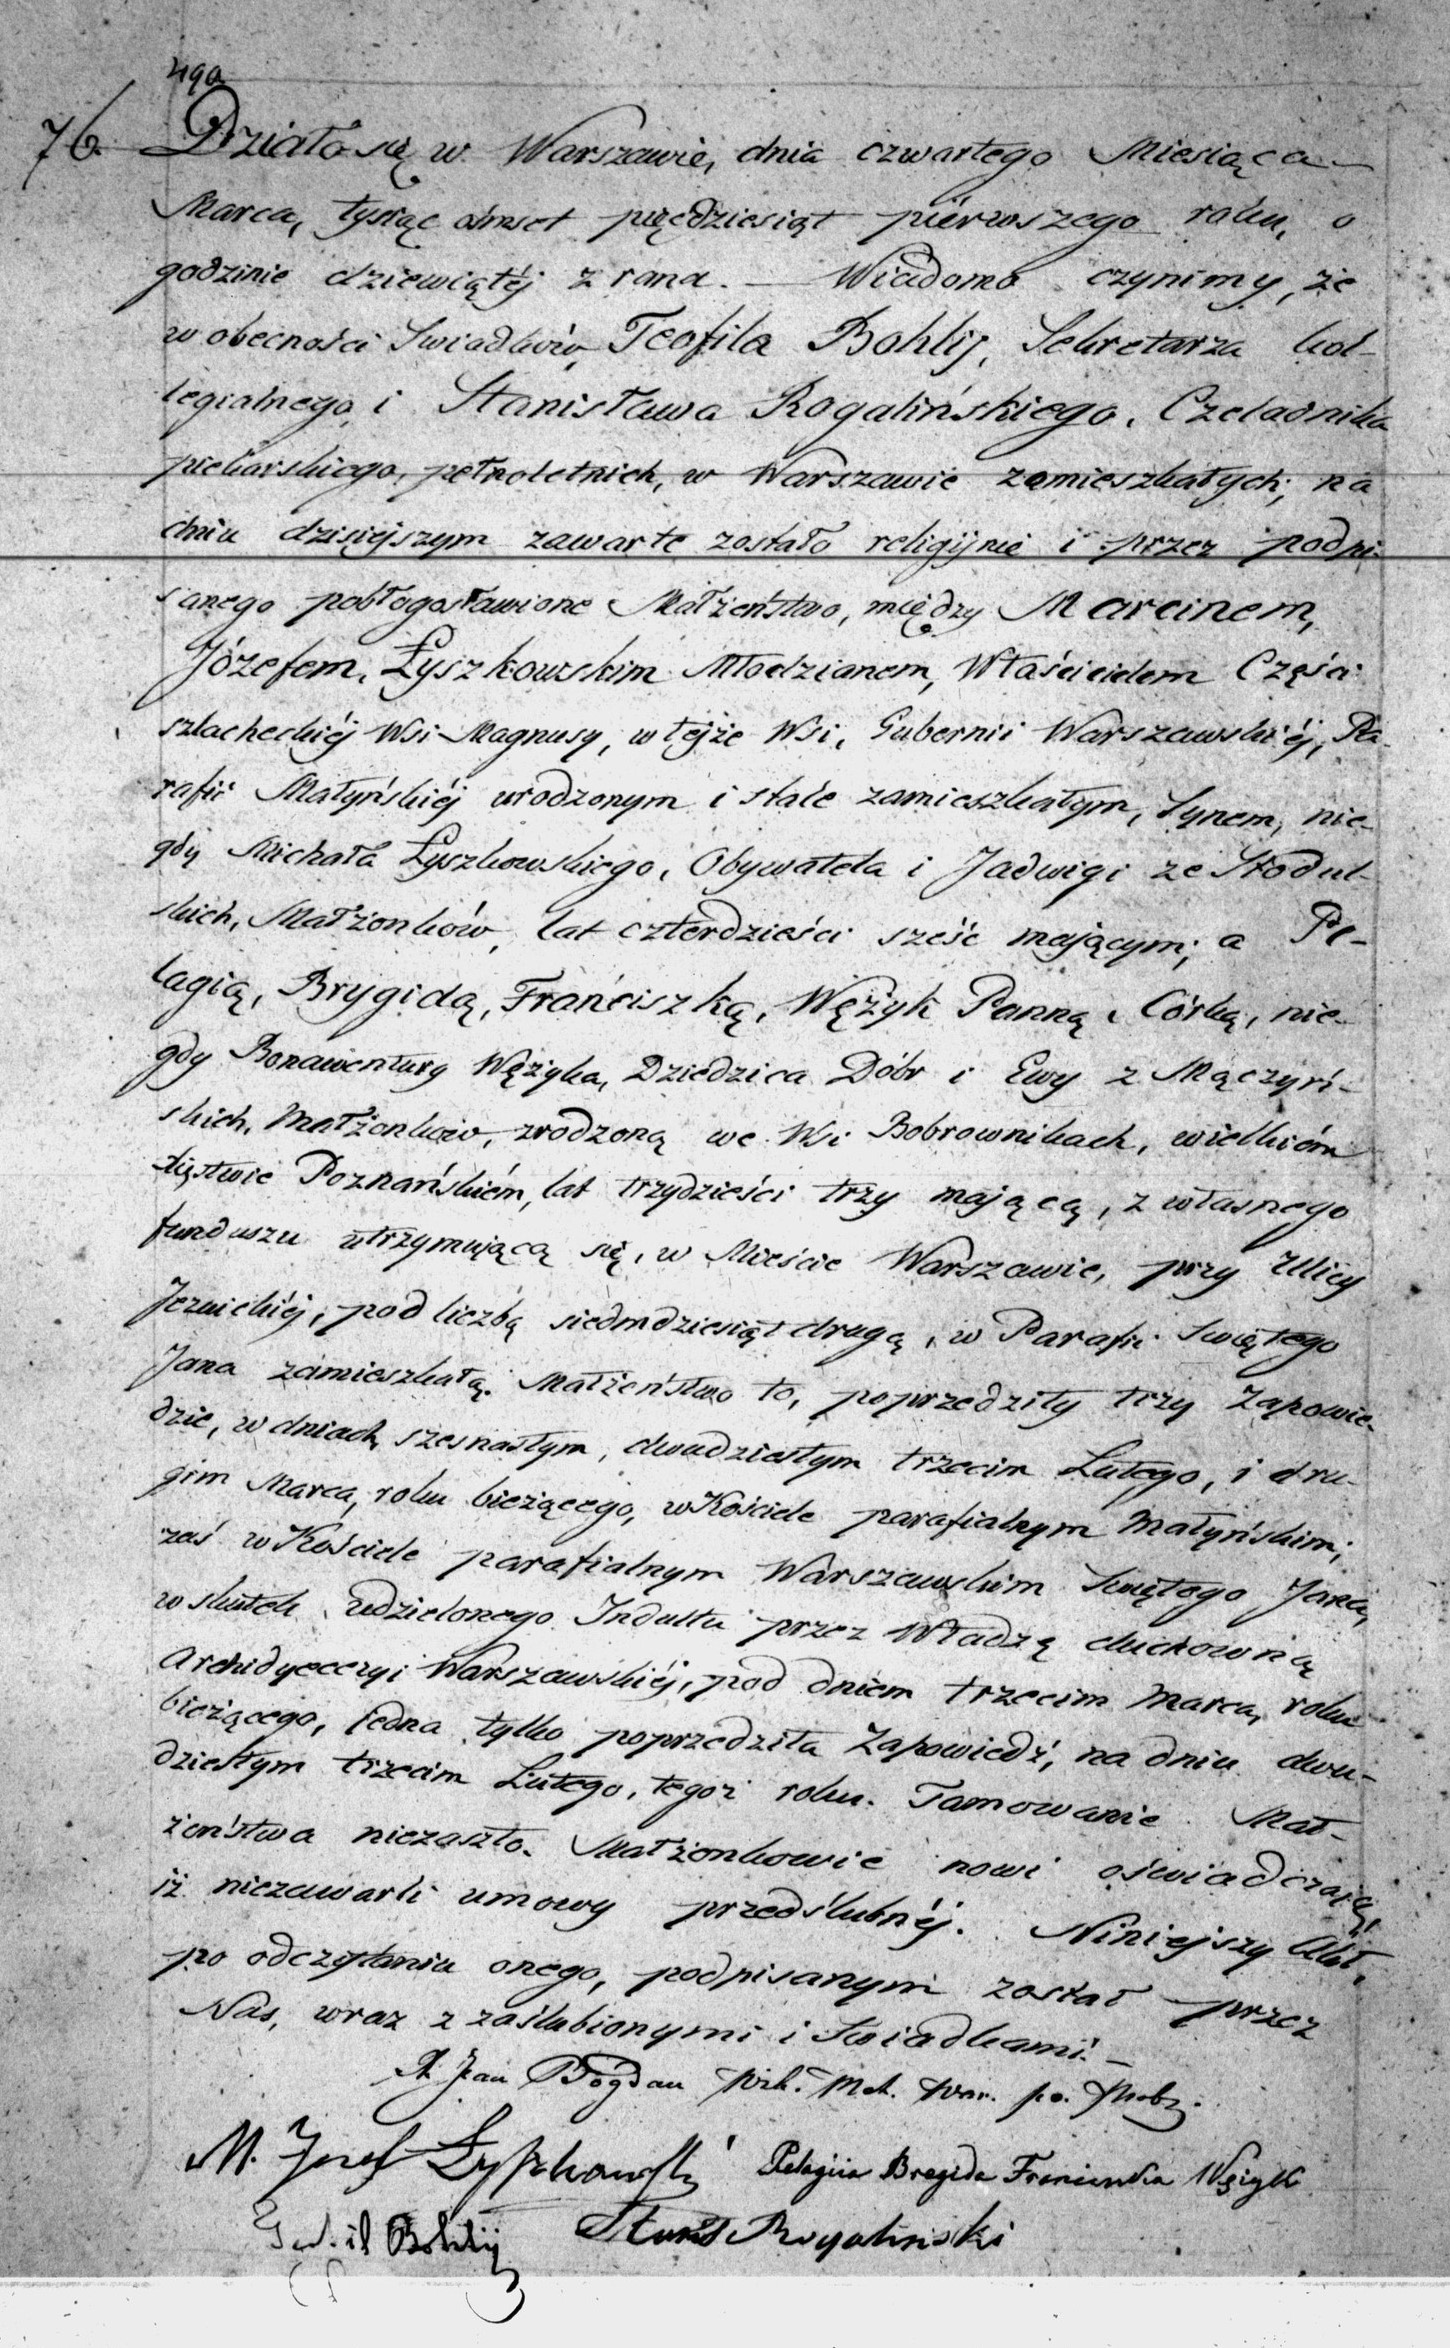 4go
76. Działo się w Warszawie, dnia czwartego Miesiąca
Marca, tysiąc ośmset pięćdziesiąt piérwszego roku, o
godzinie dziewiątéj z rana. — Wiadomo czynimy, że
w obecności Swiadków, Teofila Bohlij, Sekretarza Kol-
legialnego, i Stanisława Rogalińskiego, Czeladnika
piekarskiego, pełnoletnich, w Warszawie zamieszkałych, na
dniu dzisiejszym zawarte zostało religijnie i przez podpi-
sanego pobłogosławione Małżeństwo, między Marcinem,
Józefem, Łyszkowskim Młodzianem, Właścicielem Części
szlacheckiéj Wsi Magnusy, w tejże Wsi, Gubernii Warszawskiéj, Pa-
rafii Małyńskiéj urodzonym i stale zamieszkałym, Synem, nie-
gdy Michała Łyszkowskiego, Obywatela i Jadwigi ze Stodul-
skich, Małżonków, lat czterdzieści sześć mającym; a Pe-
lagią, Brygidą, Franciszką, Wężyk Panną, Córką, nie-
gdy Bonawentury Wężyka, Dziedzica Dóbr i Ewy z Mączyń-
skich, Małżonków, zrodzoną we Wsi Bobrownikach, wielkiém
Xięstwie Poznańskiém, lat trzydzieści trzy mającą, z własnego
funduszu utrzymującą się, w Mieście Warszawie, przy Ulicy
Jezuickiéj, pod liczbą siedmdziesiąt drugą, w Parafii Swiętego
Jana zamieszkałą. Małżeństwo to, poprzedziły trzy Zapowie-
dzie, w dniach szesnastym, dwudziestym trzecim Lutego, i dru-
gim Marca, roku bieżącego, w Kościele parafialnym Małyńskim;
zaś w Kościele parafialnym Warszawskim Swiętego Jana,
w skutek udzielonego Indultu przez Władzę duchowną
Archidyecezyi Warszawskiéj, pod dniem trzecim Marca, roku
bieżącego, jedna tylko poprzedziła Zapowiedź, na dniu dwu-
dziestym trzecim Lutego, tegoż roku. Tamowanie Mał-
żeństwa niezaszło. Małżonkowie nowi oświadczają,
iż niezawarli umowy przedślubnéj. Niniejszy Akt,
po odczytaniu onego, podpisanym został przez
Nas, wraz z zaślubionymi i Swiadkami. —
X. Jan Bogdan Wik. Met. War. po. Prob.
M. Jozef Łyszkowski Pelagija Bregida Franciszka Wężyk
Teofil Bohlij Stanis Rogalinski